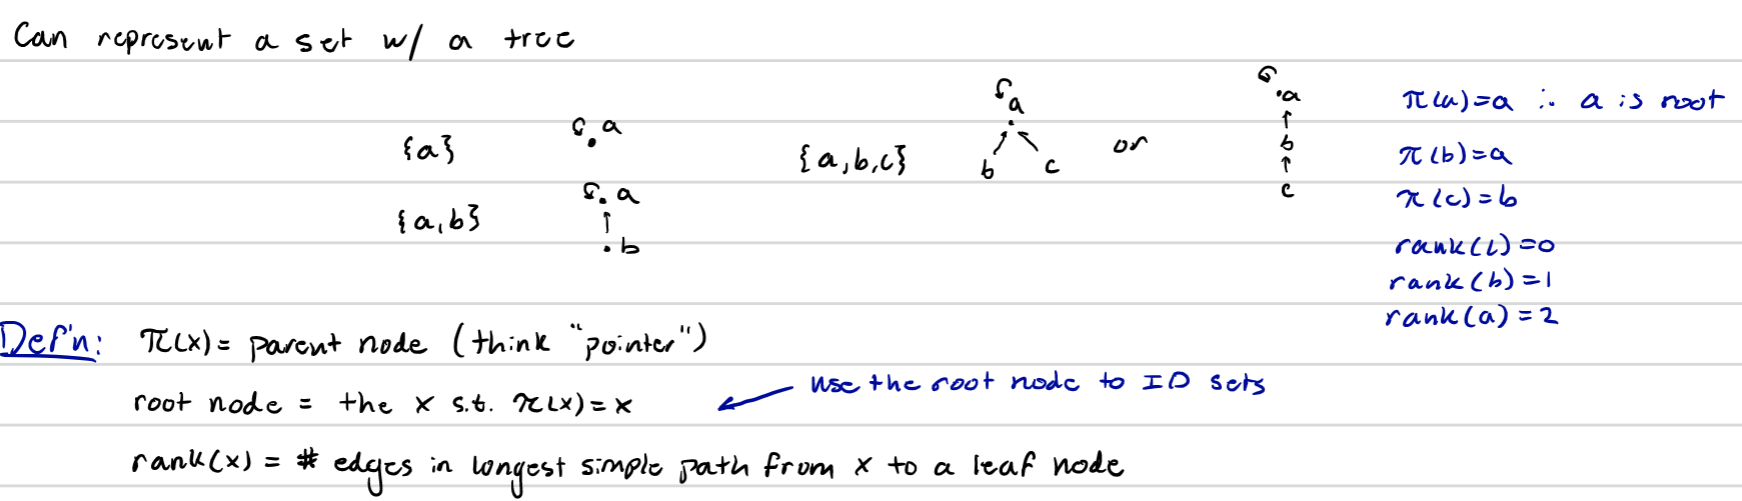 Can represent a set w/ a tree
{a} a {a,b,c} a b c or a b c π(a)=a ∴ a is root
π(b)=a
{a,b} a b π(c)=b
rank(c)=0
rank(b)=1
rank(a)=2
Def'n: π(x)= parent node (think "pointer")
root node = the x s.t. π(x)=x use the root node to ID sets
rank(x) = # edges in longest simple path from x to a leaf node